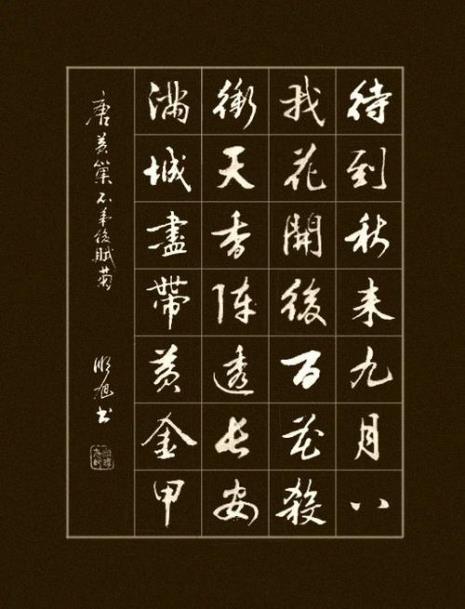 待到秋来九月八
我花開後百花殺
衝天香陣透長安
滿城盡帶黃金甲
唐黃巢不第後賦菊
順旭書